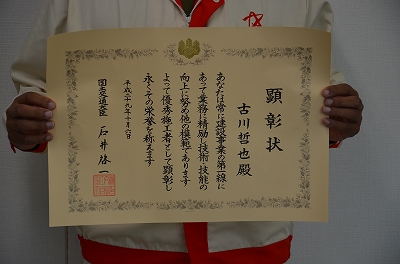 顕彰状
古川哲也殿
あなたは常に建設事業の第一線に
あって業務に精励し技術・技能の
向上に努め他の模範であります
よって優秀施工者として顕彰し
永くその栄誉を称えます
平成二十九年十月六日
国土交通大臣 石井啓一